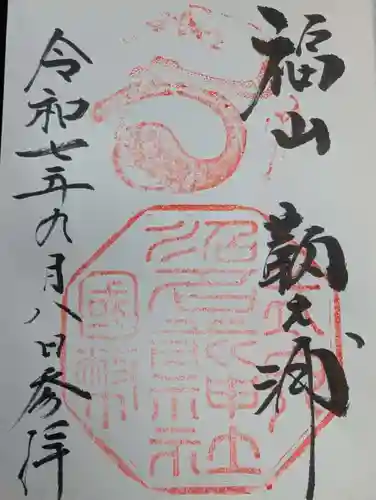 福山 鞆之浦
沼名前神社
國幣
令和七年九月八日参拝